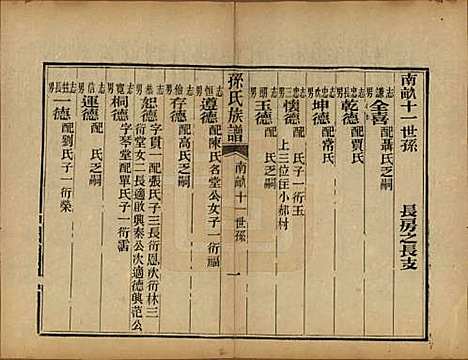 南畝十一世孫　長房之長支
志謙男　全喜　配聶氏乏嗣
志忠長男　乾德　配賈氏
志忠次男　坤德　配常氏
志忠三男　懷德　配　氏子一衍玉
上三位住小郝村
男　玉德　配　氏乏嗣
孫氏族譜　南畝十一世孫　一
志恒男　遵德　配陳氏名堂公女子一衍福
男　存德　配高氏乏嗣
志　男　恕德　字貫一配張氏子三長衍恩次衍林三
衍堂女二長適敢興秦公次適德興范公
志寬男　桐德　字琴堂配單氏子一衍雷
志信男　運德　配　氏乏嗣
志　長男　一德　配劉氏子一衍榮